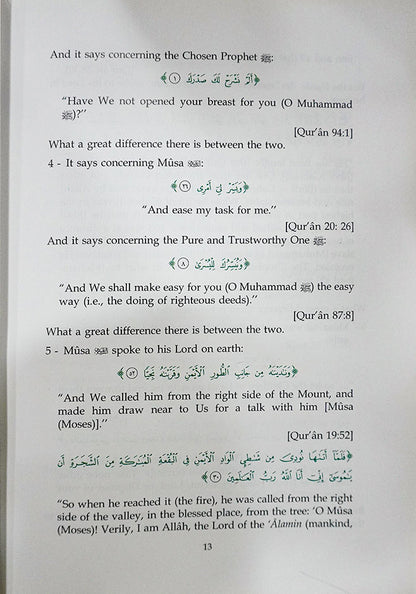 And it says concerning the Chosen Prophet ﷺ:
﴿أَلَمْ نَشْرَحْ لَكَ صَدْرَكَ ۝١﴾
“Have We not opened your breast for you (O Muhammad
ﷺ)?”
[Qur’ân 94:1]
What a great difference there is between the two.
4 - It says concerning Mûsa :
﴿وَيَسِّرْ لِي أَمْرِي ۝٢٦﴾
“And ease my task for me.”
[Qur’ân 20: 26]
And it says concerning the Pure and Trustworthy One ﷺ:
﴿وَنُيَسِّرُكَ لِلْيُسْرَى ۝٨﴾
“And We shall make easy for you (O Muhammad ﷺ) the easy
way (i.e., the doing of righteous deeds).”
[Qur’ân 87:8]
What a great difference there is between the two.
5 - Mûsa spoke to his Lord on earth:
﴿وَنَادَيْنَاهُ مِن جَانِبِ الطُّورِ الْأَيْمَنِ وَقَرَّبْنَاهُ نَجِيًّا ۝٥٢﴾
“And We called him from the right side of the Mount, and
made him draw near to Us for a talk with him [Mûsa
(Moses)].”
[Qur’ân 19:52]
﴿فَلَمَّا أَتَاهَا نُودِيَ مِن شَاطِئِ الْوَادِ الْأَيْمَنِ فِي الْبُقْعَةِ الْمُبَارَكَةِ مِنَ الشَّجَرَةِ أَن
يَا مُوسَى إِنِّي أَنَا اللَّهُ رَبُّ الْعَالَمِينَ ۝٣٠﴾
“So when he reached it (the fire), he was called from the right
side of the valley, in the blessed place, from the tree: ‘O Mûsa
(Moses)! Verily, I am Allâh, the Lord of the ‘Âlamin (mankind,
13